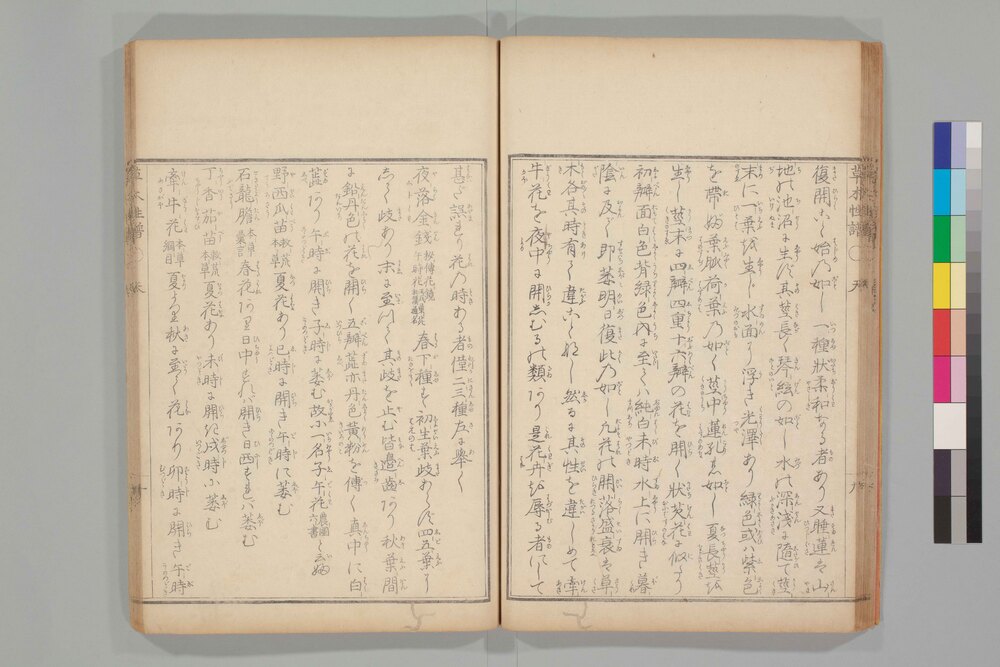 草木性譜
復開こと始乃如し一種状柔和なる者あり又睡蓮は山
地の池沼に生ず其莖長く琴絃の如し水の深浅に随て莖
末に一葉を生じ水面に浮き光澤あり緑色或ハ紫色
を帯ぶ葉狐荷葉乃如く莖中蓮孔の如し夏長莖を
生し莖末に四瓣四重十六瓣の花を開く状芡花に似り
初瓣面白色背緑色内に至てハ純白未時水上に開き暮
陰に及び即萎明日復此乃如し凡花の開落盛衰は草
木各其時有て違こと無し然るに其性を違しめて牽
牛花を夜中に開しむるの類あり是花卉を辱る者にして
甚だ誤まり花乃時ある者僅二三種左に挙ぐ
夜落金銭 秘傳花鏡 午時花 春下種す初生葉歧あらず四五葉より
して歧あり末に至つて其歧を止む皆邉歯あり秋葉間
に鉛丹色の花を開く五瓣蘂亦丹色黄粉を傳く真中に白
蘂あり午時に開き子時に萎む故に一名子午花 農圃六書 と云
野西瓜苗 救荒本草 夏花あり巳時に開き午時に萎む
石龍膽 本草彙言 春花あり日中されバ開き日西すれハ萎む
丁香茄苗 救荒本草 夏花あり未時に開き戌時に萎む
牽牛花 綱目 夏より秋に至て花あり卯時に開き午時